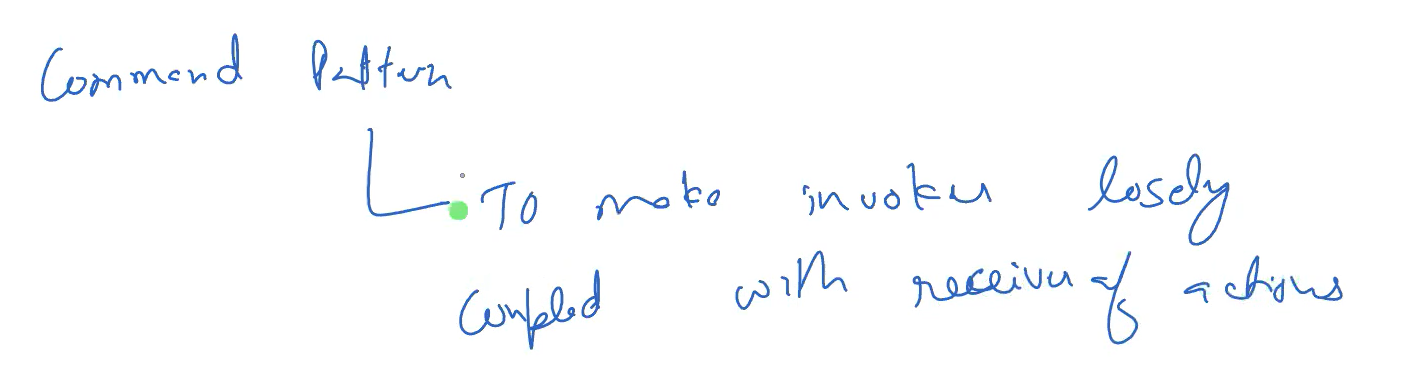 Command Pattern
To make invoker losely
coupled with receiver of actions